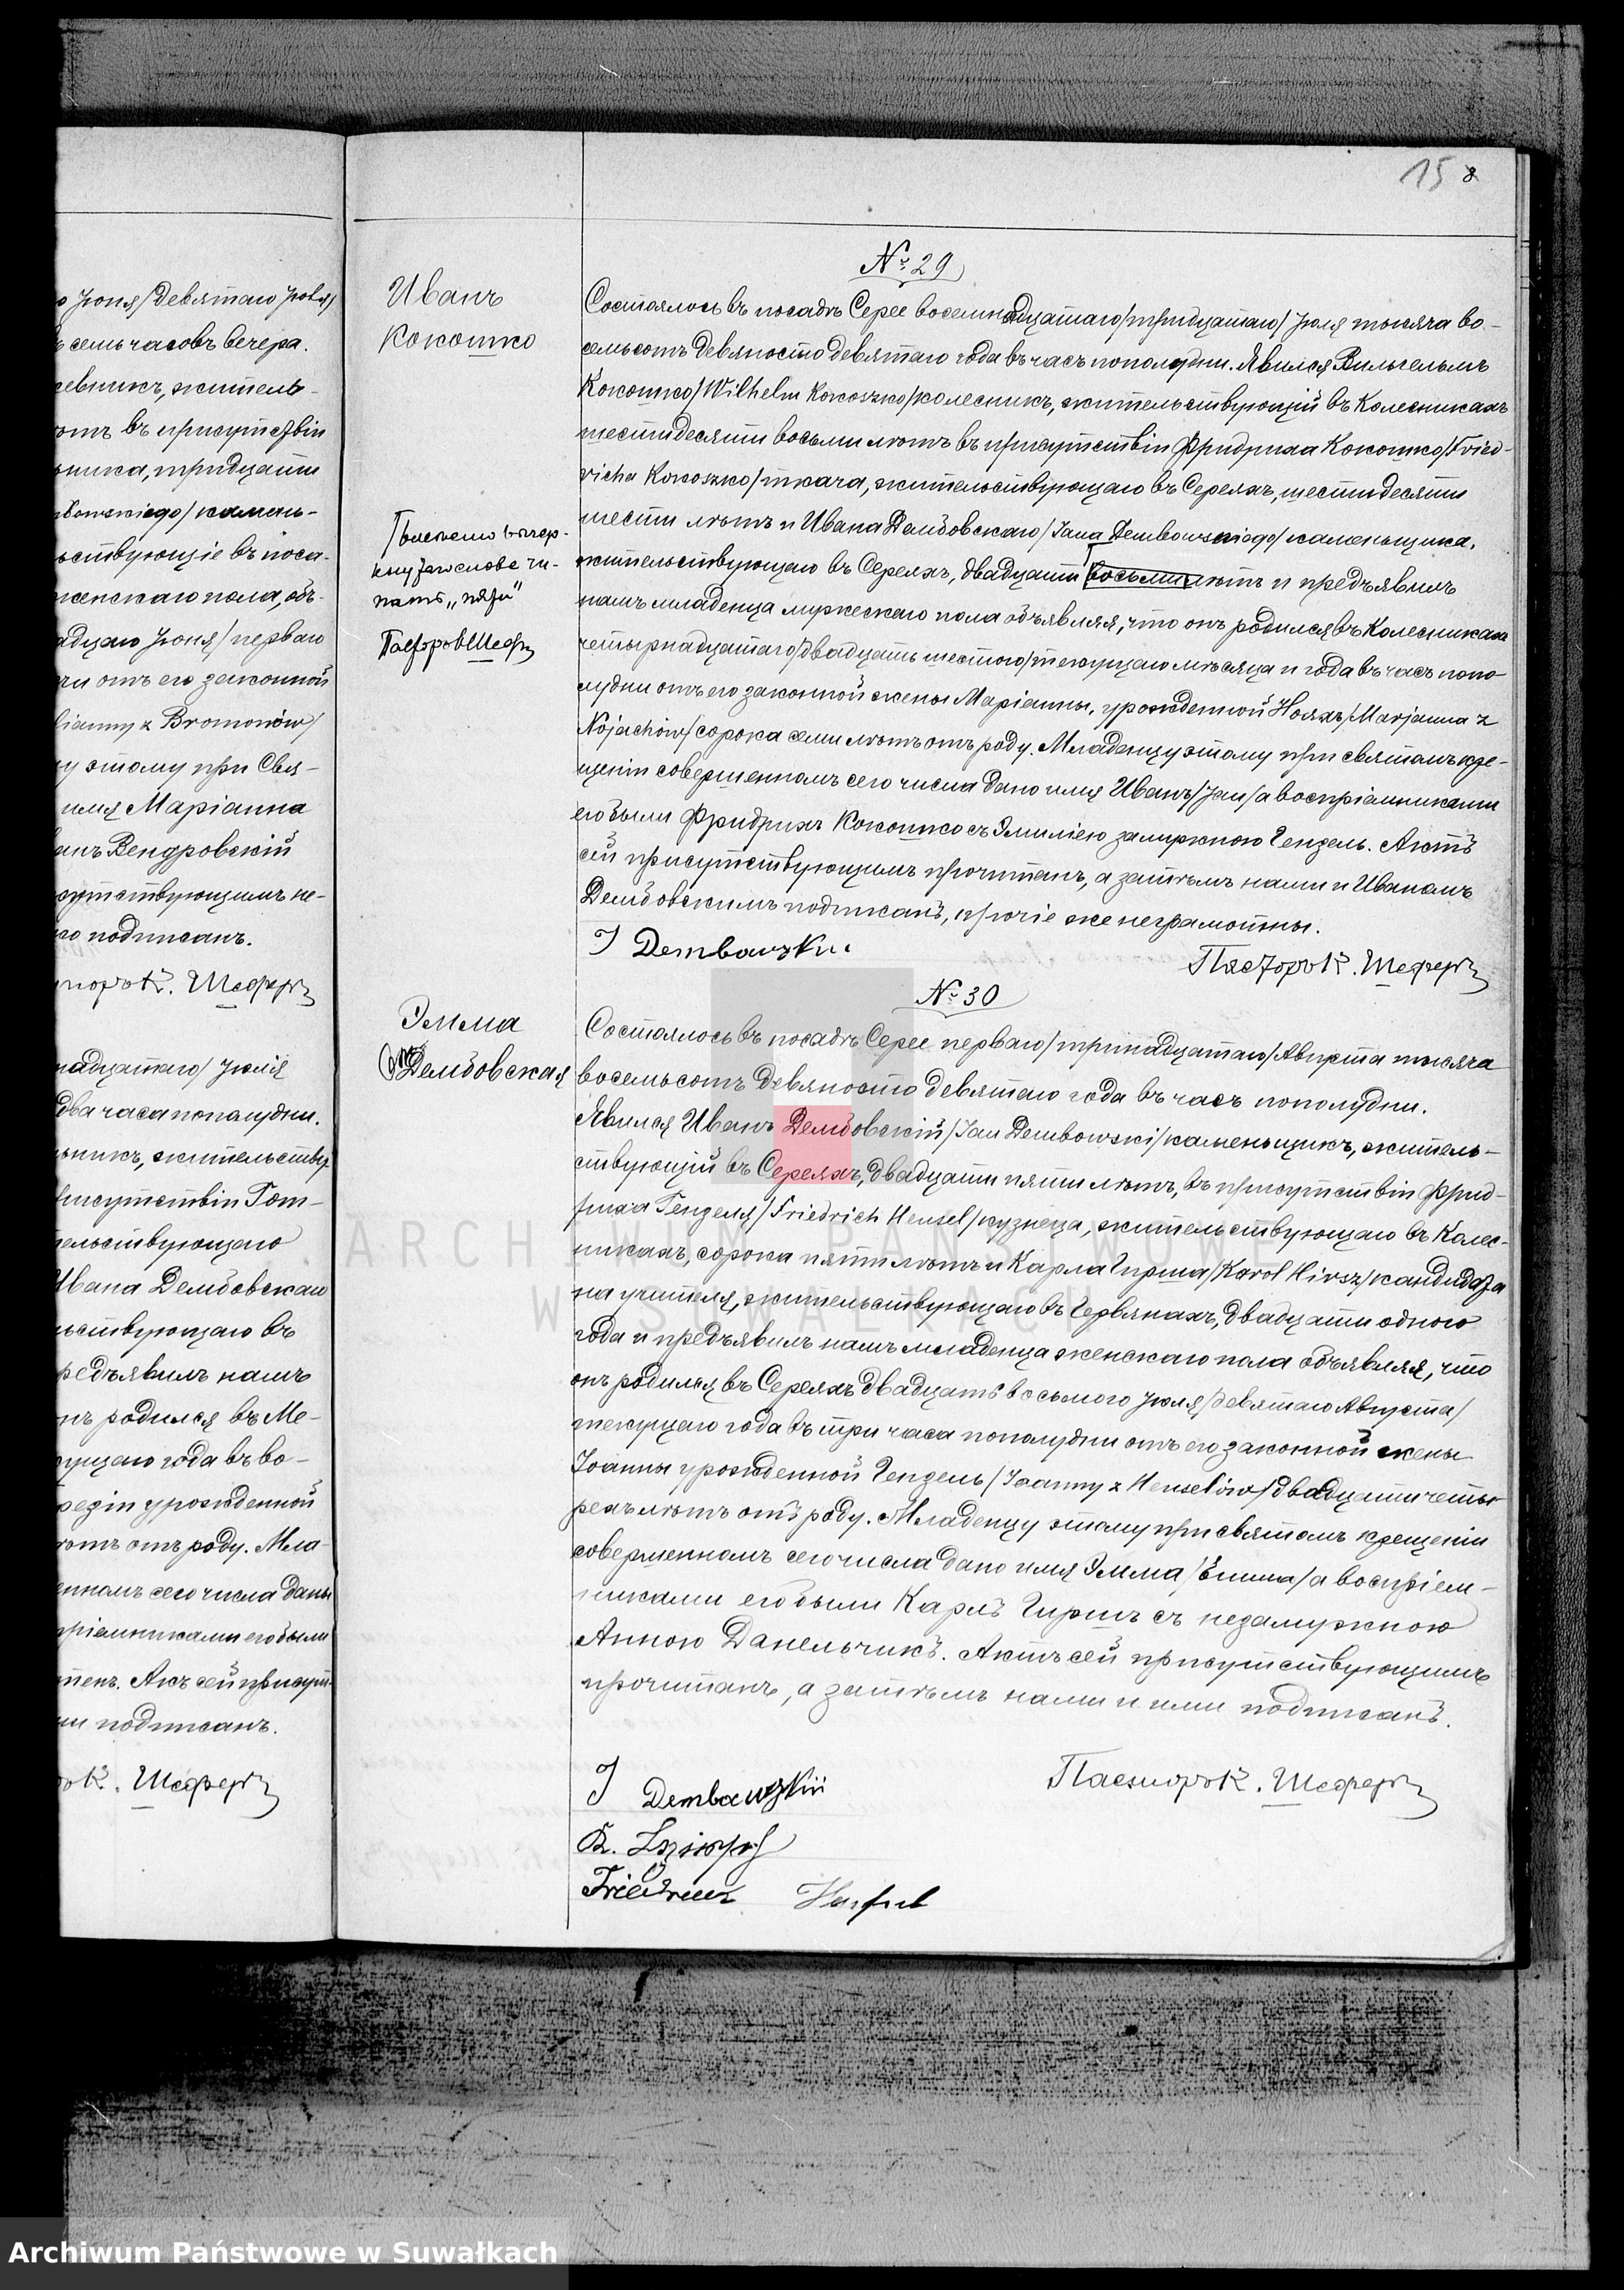 15 8
о Іюня/девятаго Іюля/
ъ семь часовъ вечера.
житель-
отъ въ присутствіи
ника, тридцати
камень-
ьствующіе въ поса-
женскаго пола, объ-
адцаго Іюня/перваго
ни отъ его законной
ianny z Bromonów/
у этому при Свя-
имя Маріанна
анъ Вендровскій
сутствующимъ не-
го подписанъ.
торъ К. Шефферъ
надцатаго/Іюля
два часа пополудни.
ьникъ, жительству
присутствіи Гот-
тельствующаго
Ивана Дембовскаго
ьствующаго въ
редъявилъ намъ
нъ родился въ Ме-
кущаго года въ во-
урожденной
лѣтъ отъ роду. Мла-
енномъ сего числа даны
пріемниками его были
Актъ сей присут-
ми подписанъ.
ръ К. Шефферъ
Иванъ
Кокошко
Пастор Шеффер
№ 29
Состоялось въ посадѣ Серее восемнадцатаго/тридцатаго/Іюля тысяча во-
семьсотъ девяносто девятаго года въ часъ пополудни. Явился Вильгельмъ
Кокошко/Wilhelm Kokoszko/колесникъ, жительствующій въ Колесникахъ
шестидесяти восьми лѣтъ въ присутствіи Фридриха Кокошко/Fried-
richa Kokoszko/ткача, жительствующаго въ Сереяхъ, шестидесяти
шести лѣтъ и Ивана Дембовскаго/Jana Dembowskiego/каменьщика,
жительствующаго въ Сереяхъ, двадцати восьми лѣтъ и предъявилъ
намъ младенца мужескаго пола объявляя, что онъ родился въ Колесникахъ
четырнадцатаго/двадцать шестого/текущаго мѣсяца и года въ часъ попо-
лудни отъ его законной жены Маріанны, урожденной Нояхъ/Marjanna z
Nojachów/сорока семи лѣтъ отъ роду. Младенцу этому при святомъ кре-
щеніи совершенномъ сего числа дано имя Иванъ/Jan/а воспріемниками
его были Фридрихъ Кокошко съ Эмиліею замужною Гензель. Актъ
сей присутствующимъ прочитанъ, а затѣмъ нами и Иваномъ
Дембовскимъ подписанъ, прочіе же неграмотны.
J Dembowzki.
Пасторъ К. Шефферъ
№ 30
Эмма
Дембовская
Состоялось въ посадѣ Серее перваго/тринадцатаго/Августа тысяча
восемьсотъ девяносто девятаго года въ часъ пополудни.
Явился Иванъ Дембовскій/Jan Dembowski/каменьщикъ, житель-
ствующій въ Сереяхъ, двадцати пяти лѣтъ, въ присутствіи Фрид-
риха Гензеля/Friedrich Hensel/кузнеца, жительствующаго въ Колес-
никахъ, сорока пяти лѣтъ и Карла Гирша/Karol Hirsz/кандидата
на учителя, жительствующаго въ Червянкахъ, двадцати одного
года и предъявилъ намъ младенца женскаго пола объявляя, что
онъ родился въ Сереяхъ двадцать восьмого Іюля/девятаго Августа/
текущаго года въ три часа пополудни отъ его законной жены
Іоанны урожденной Гензель/Joanny z Henselów/двадцати четы-
рехъ лѣтъ отъ роду. Младенцу этому при святомъ крещеніи
совершенномъ сего числа дано имя Эмма/Emma/а воспріем-
никами его были Карлъ Гиршъ съ незамужною
Анною Данельчикъ. Актъ сей присутствующимъ
прочитанъ, а затѣмъ нами и ими подписанъ.
J Dembowzkii
Пасторъ К. Шефферъ
Friedrich Hensel
ARCHIWUM PAŃSTWOWE
W SUWAŁKACH
Archiwum Państwowe w Suwałkach